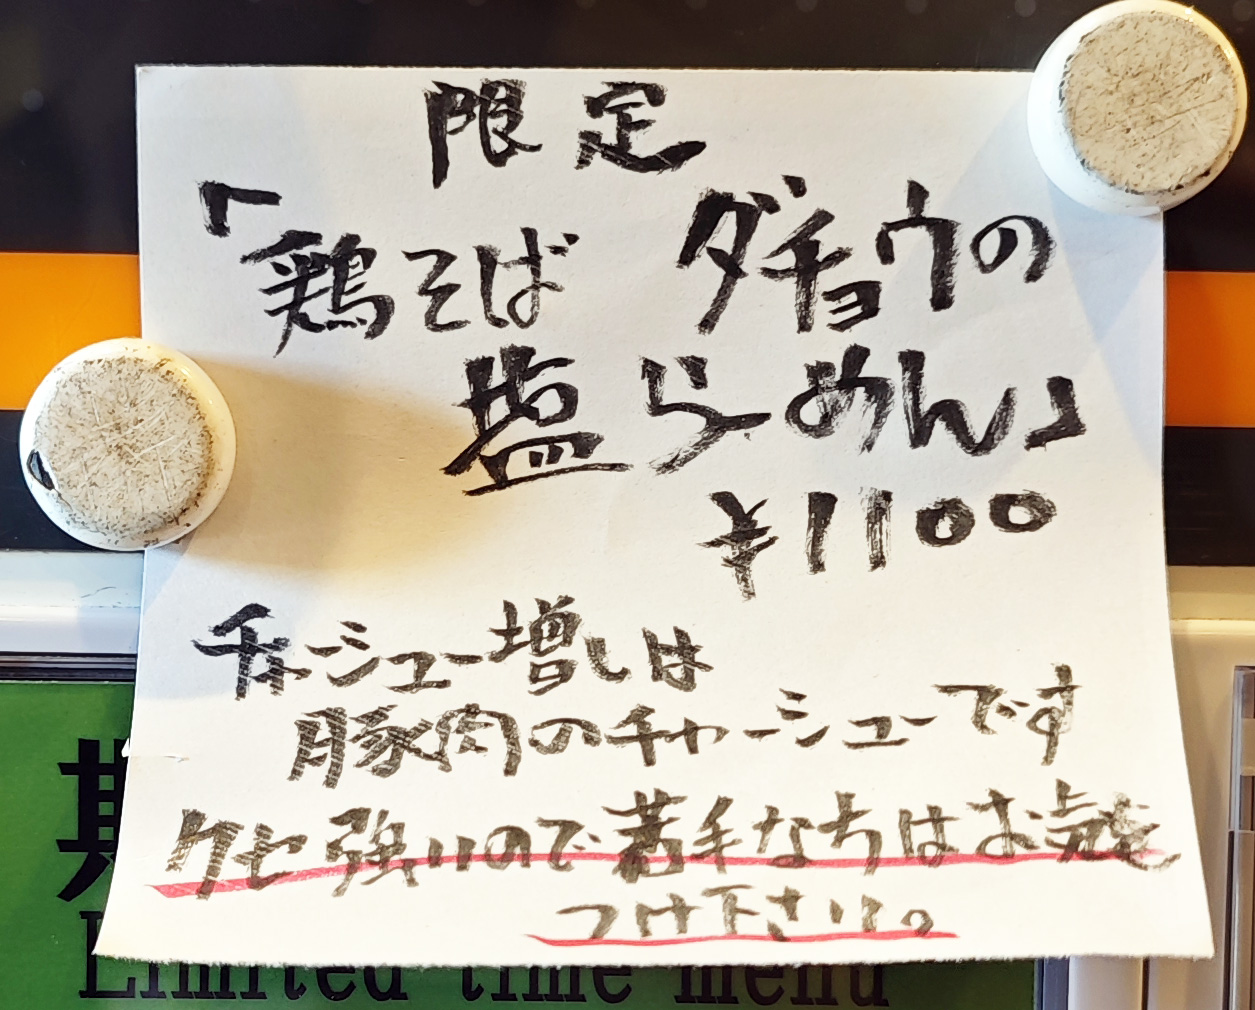 限定
「鶏そば ダチョウの
塩らーめん」
¥1100
チャーシュー増しは
豚肉のチャーシューです
クセ強いので苦手な方はお気を
つけ下さい。
期
Limited time menu